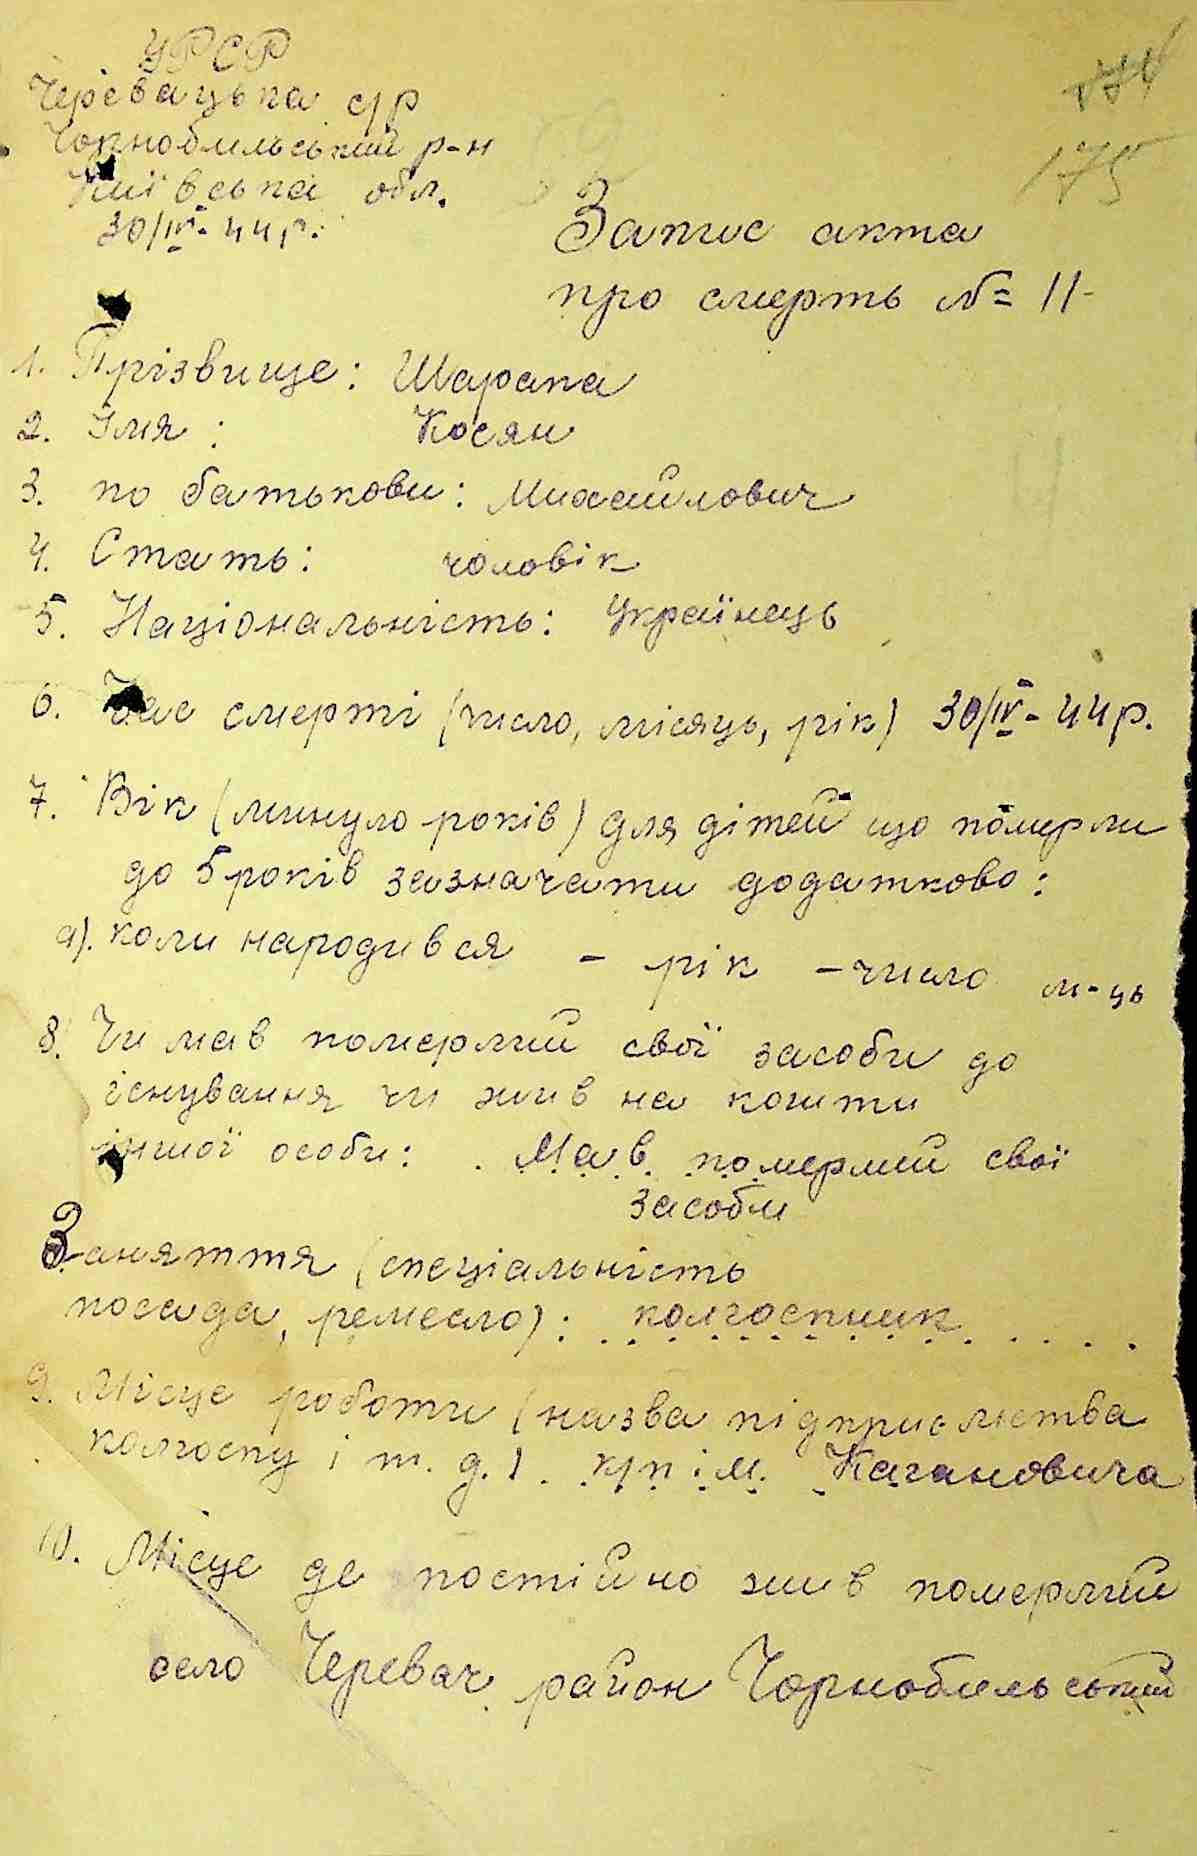 УРСР
Черевацька с/р
Чорнобильський р-н
Київська обл.
30/IV-44р.
175
Запис акта
про смерть № 11-
1. Прізвище: Шарапа
2. Імя: Косян
3. по батькови: Михайлович
4. Стать: чоловік
5. Національність: Українець
6. Час смерті (число, місяць, рік) 30/IV-44р.
7. Вік (минуло років) для дітей що померли
до 5 років зазначати додатково:
а). коли народився - рік - число м-ць
8. Чи мав померлий свої засоби до
існування чи жив на кошти
іншої особи: . Мав померлий свої
засоби
Заняття (спеціальність
посада, ремесло): . колгоспник . . . .
9. Місце роботи (назва підприємства
колгоспу і т. д.). к/п ім. Кагановича
10. Місце де постійно жив померлий
село Черевач район Чорнобильський